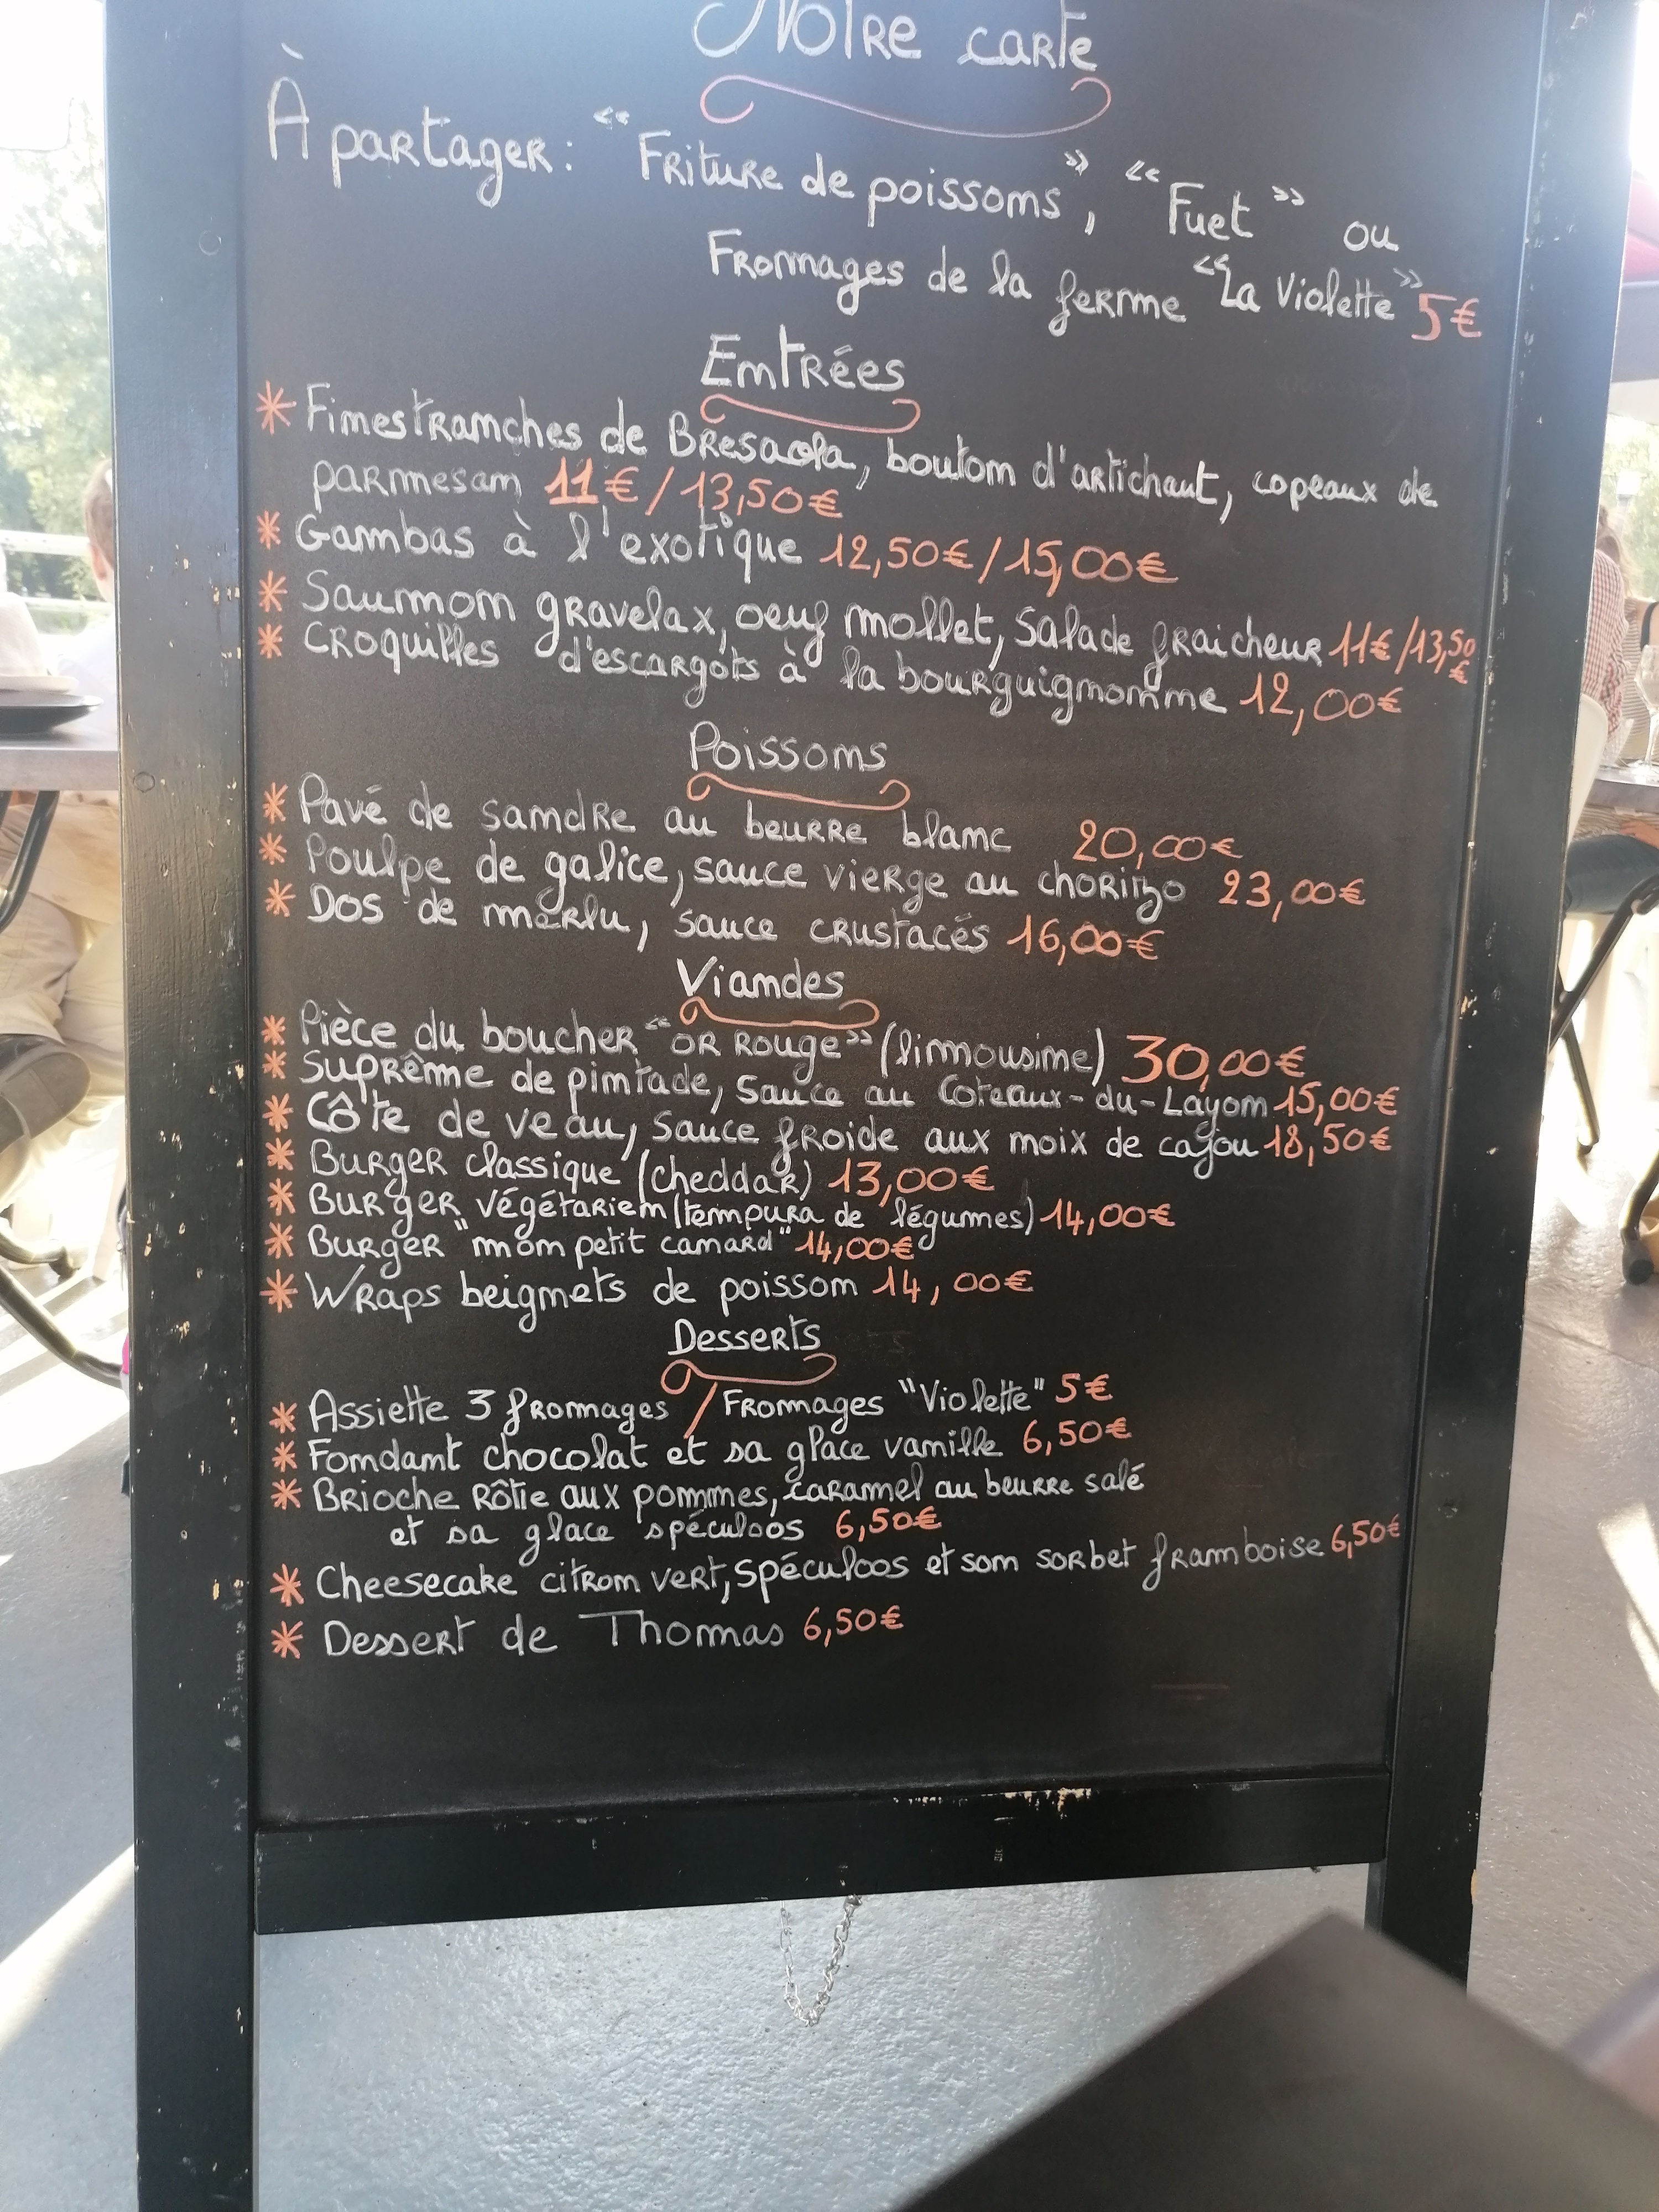 Notre carte
À partager: "Friture de poissons", "Fuet" ou
Fromages de la ferme "La Violette" 5€
Entrées
* Finestranches de Bresaola, bouton d'artichaut, copeaux de
parmesan 11€/13,50€
* Gambas à l'exotique 12,50€/15,00€
* Saumon gravelax, oeuf mollet, Salade fraicheur 11€/13,50
€
* Croquilles d'escargots à la bourguignonne 12,00€
Poissons
* Pavé de sandre au beurre blanc 20,00€
* Poulpe de galice, sauce vierge au chorizo 23,00€
* Dos de merlu, sauce crustacés 16,00€
Viandes
* Pièce du boucher "OR ROUGE" (limousine) 30,00€
* Suprême de pintade, Sauce au Coteaux-du-Layon 15,00€
* Côte de veau, sauce froide aux noix de cajou 18,50€
* Burger classique (cheddar) 13,00€
* Burger végétarien (tempura de légumes) 14,00€
* Burger "mon petit canard" 14,00€
* Wraps beignets de poisson 14,00€
Desserts
* Assiette 3 fromages / Fromages "Violette" 5€
* Fondant chocolat et sa glace vanille 6,50€
* Brioche Rôtie aux pommes, caramel au beurre salé
et sa glace spéculoos 6,50€
* Cheesecake citron vert, spéculoos et son sorbet framboise 6,50€
* Dessert de Thomas 6,50€